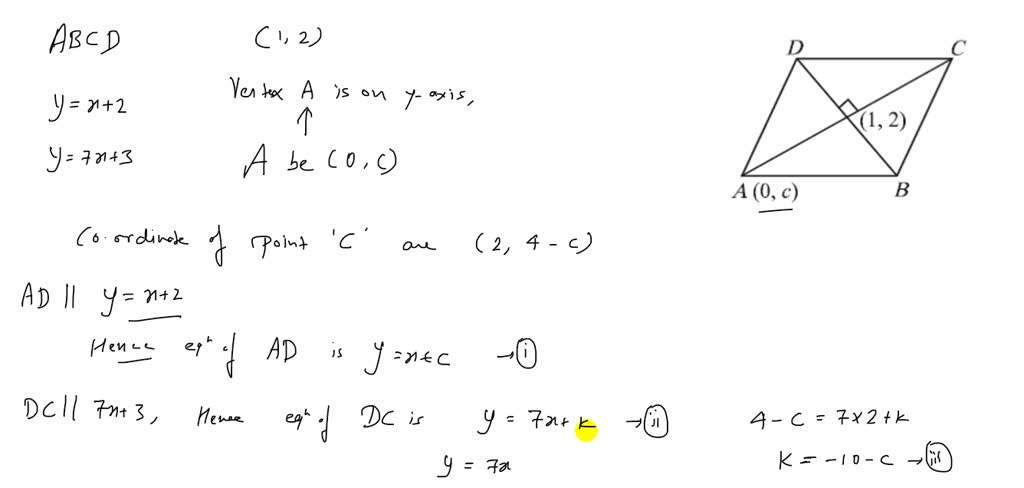 ABCD (1, 2)
Vertex A is on y-axis,
y = x+2
↑
y = 7x+3 A be (0, c)
D C
(1, 2)
A (0, c) B
Co-ordinate of point 'C' are (2, 4 - c)
AD || y = x+2
Hence eqⁿ of AD is y = x+c →(i)
DC || 7x+3, Hence eqⁿ of DC is y = 7x+k →(ii) 4 - c = 7×2+k
y = 7x k = -10 - c →(iii)